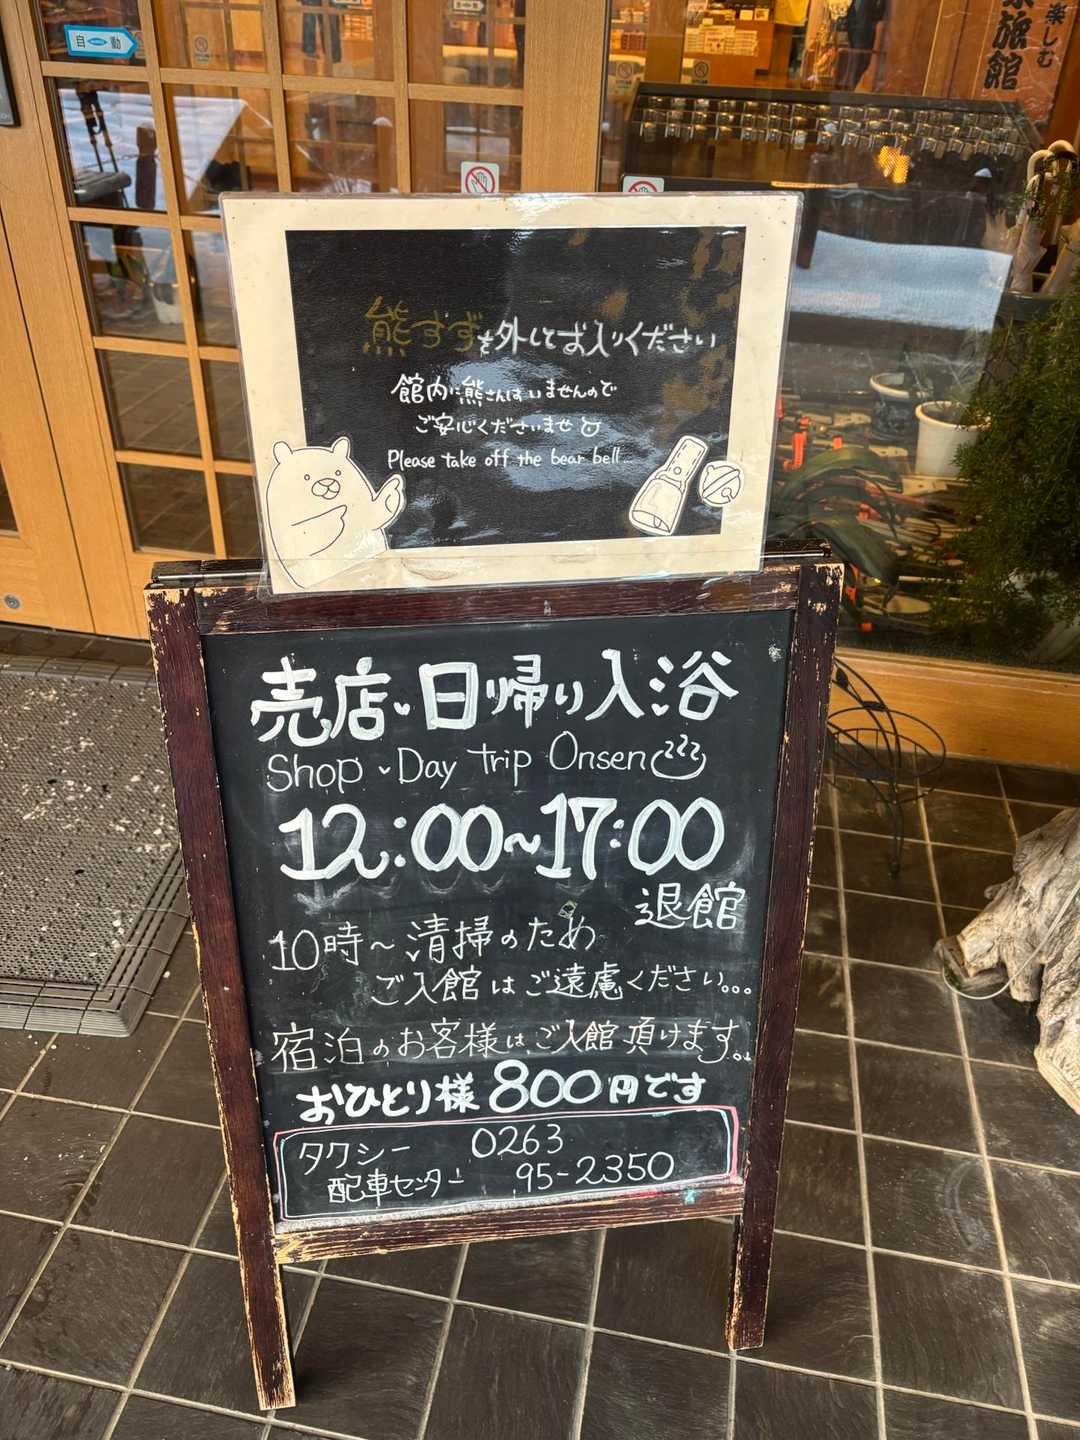 自動
楽しむ
旅館
熊すずを外してお入りください
館内に熊さんはいませんので
ご安心くださいませ
Please take off the bear bell...
売店・日帰り入浴
Shop・Day trip Onsen
12:00~17:00
退館
10時~清掃のため
ご入館はご遠慮ください...
宿泊のお客様は、ご入館頂けます。
おひとり様800円です
タクシー 0263
配車センター 95-2350